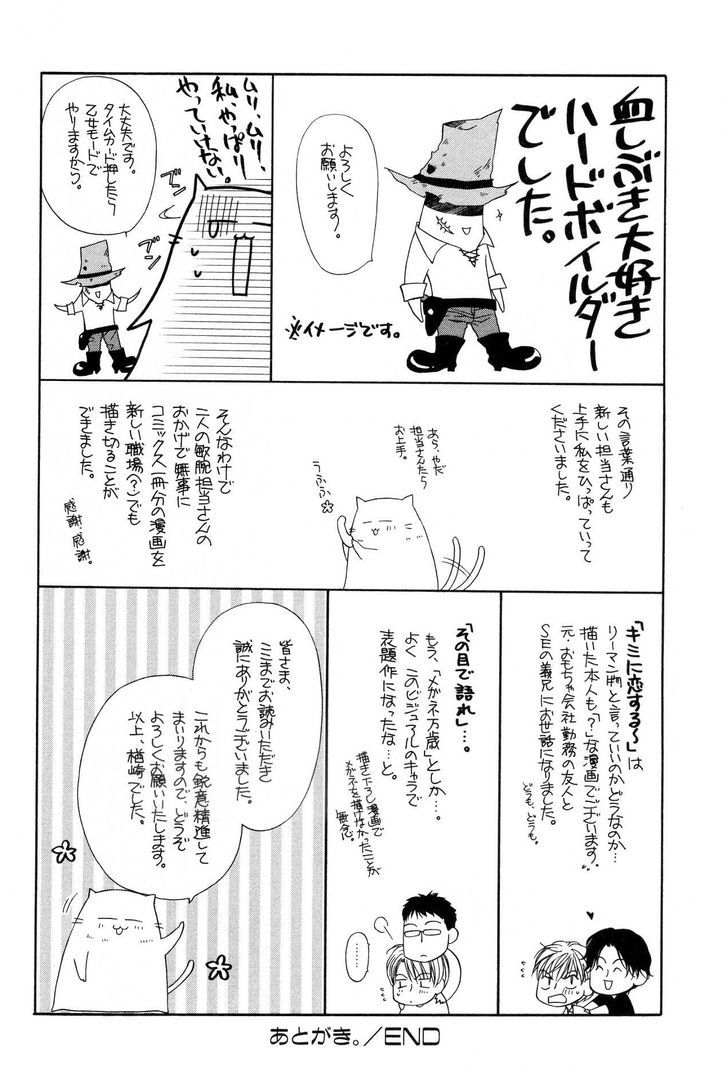 血しぶき大好き
ハードボイルダー
でした。
よろしく
お願いします。
※イメージです。
ムリ、ムリ、
私、やっぱり
やっていけない。
大丈夫です。
タイムカード押したら
乙女モードで
やりますから。
ズン
ズン
その言葉通り
新しい担当さんも
上手に私をひっぱっていって
くださいました。
あら、やだ
担当さんたら
お上手。
うふふ
そんなわけで
二人の敏腕担当さんの
おかげで無事に
コミックス一冊分の漫画を
新しい職場(?)でも
描き切ることが
できました。
感謝、感謝。
「キミに恋する〜」は
リーマン物と言っていいのかどうなのか…
描いた本人も「?」な漫画でございます。
元・おもちゃ会社勤務の友人と
SEの義兄にお世話になりました。
どうも、どうも。
「その目で語れ」…。
もう、「メガネ万歳」としか…。
よく このビジュアルのキャラで
表題作になったな…と。
描き下ろし漫画で
メガネを描けなかったことが
無念。
………
皆さま、
ここまでお読みいただき
誠にありがとうございました。
これからも鋭意精進して
まいりますので、どうぞ
よろしくお願いいたします。
以上、楢崎でした。
あとがき。/END